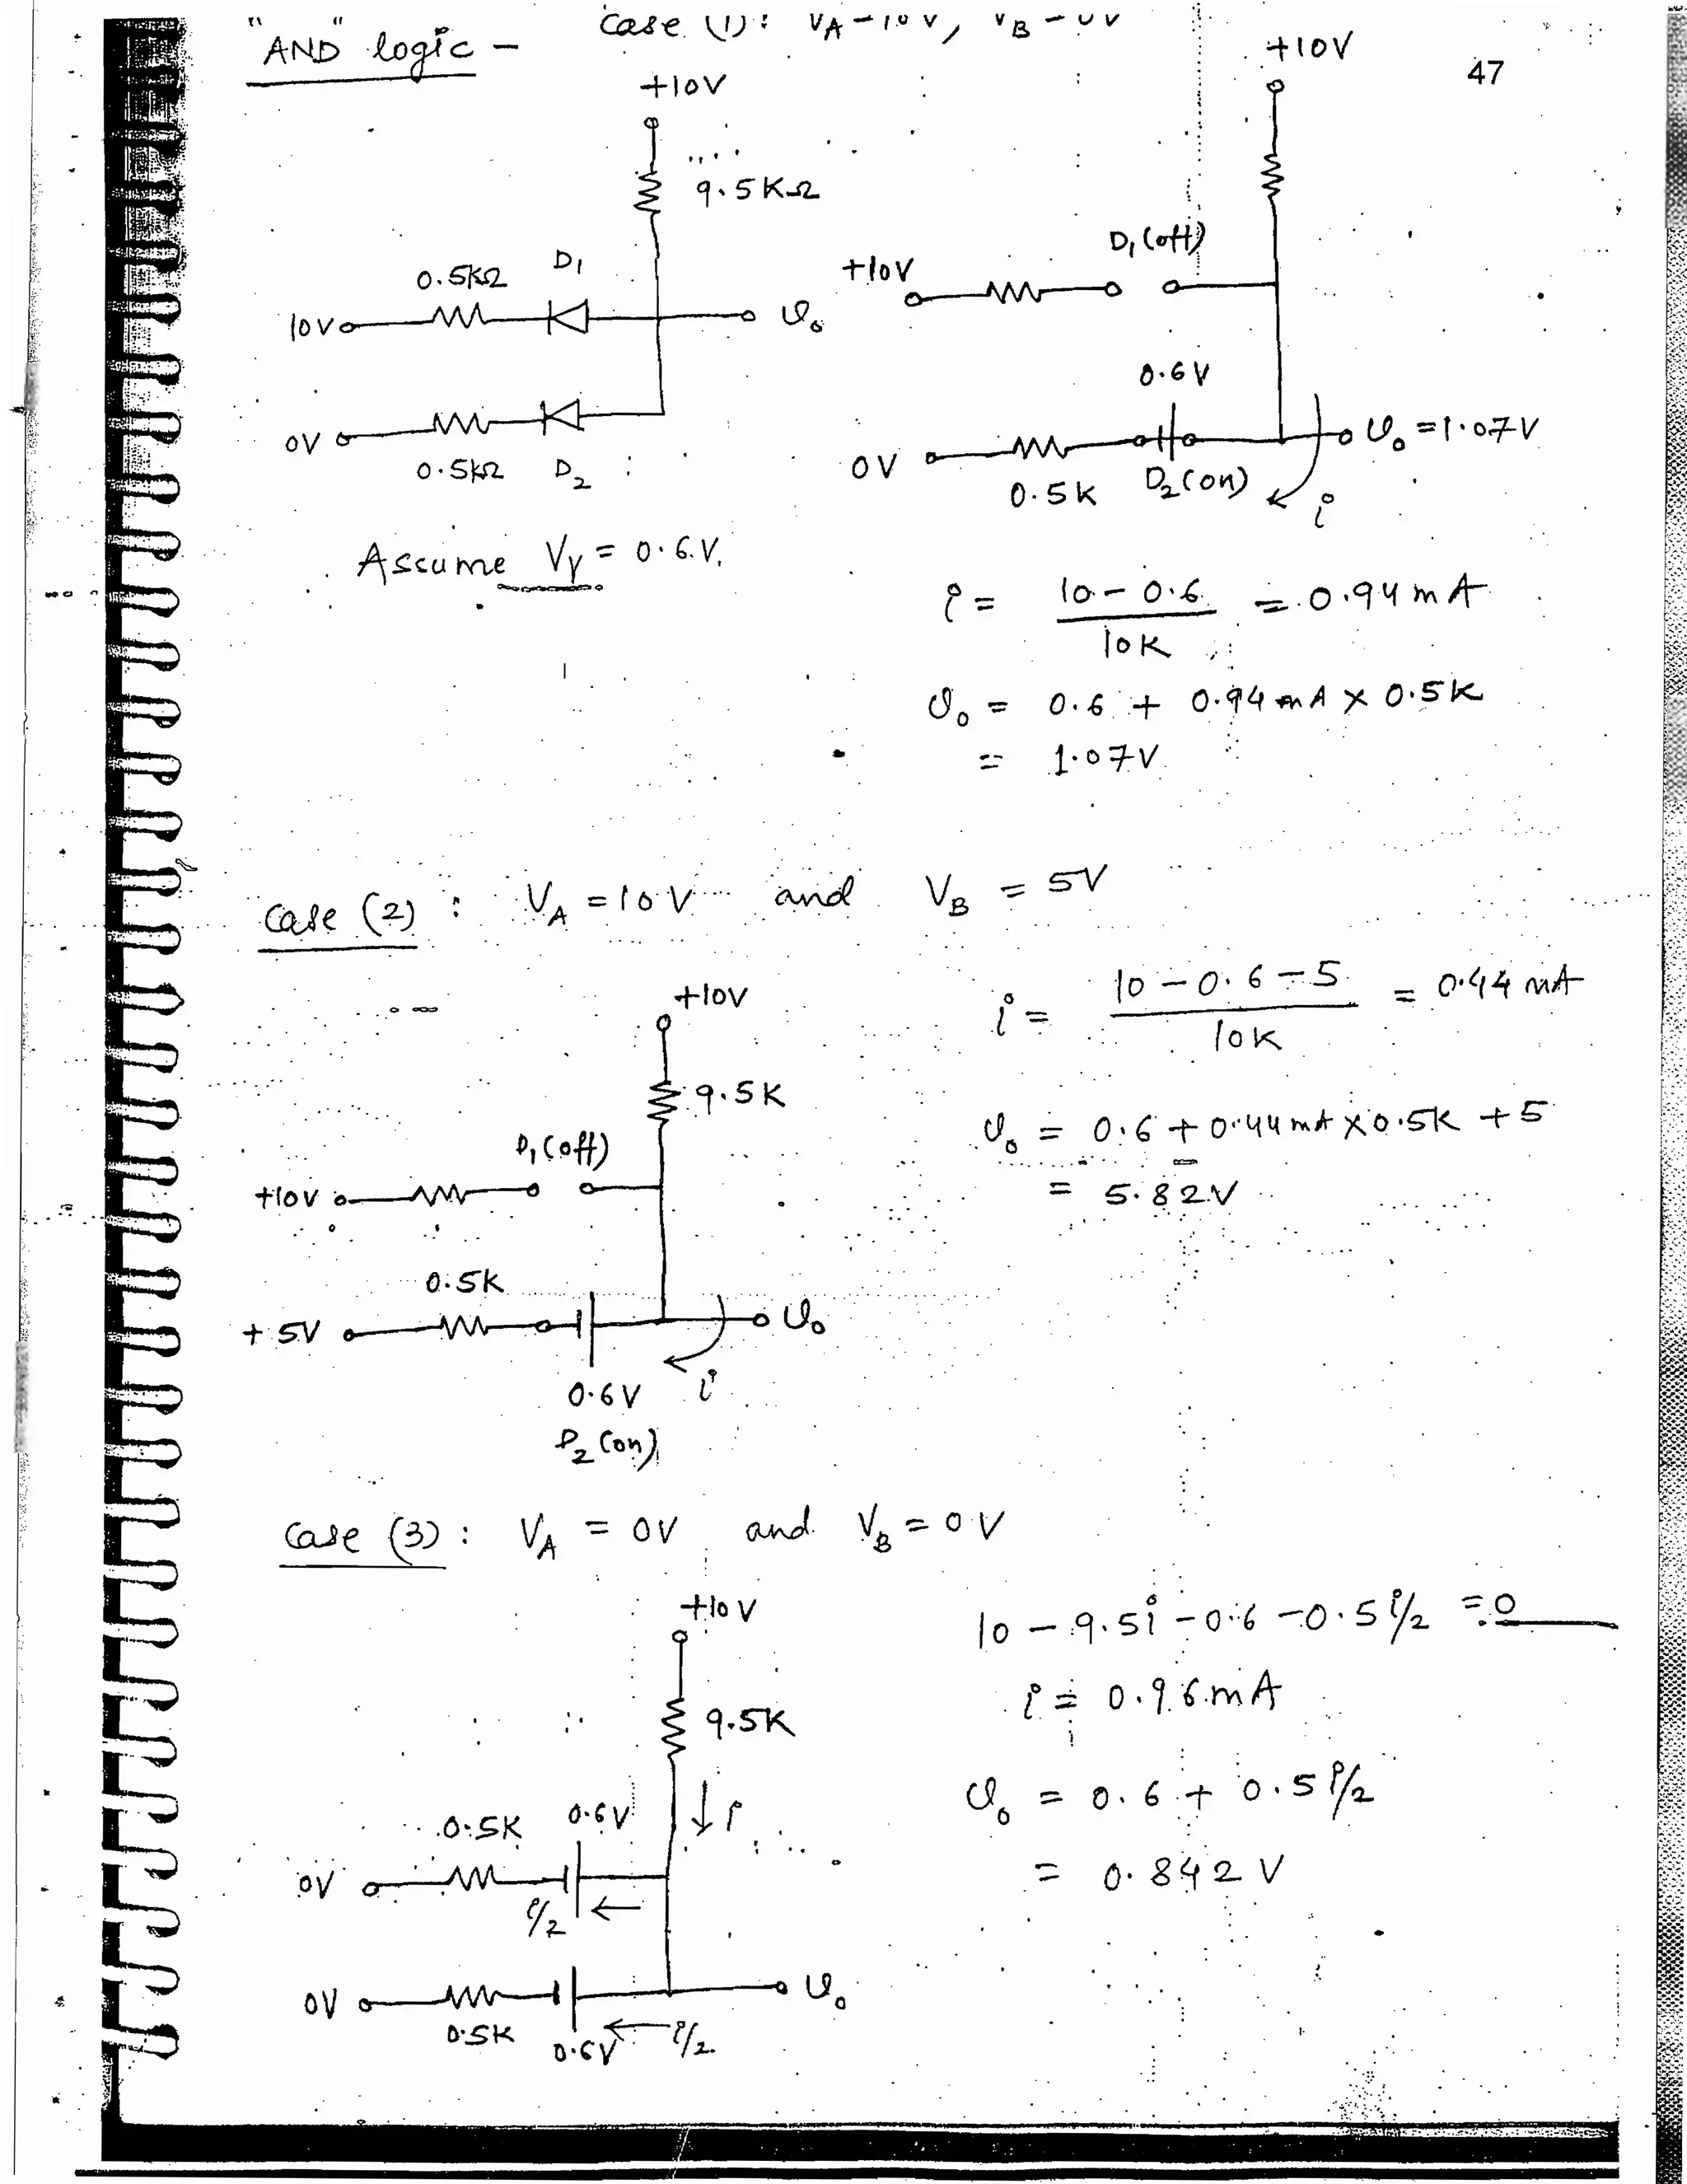 "AND" logic - Case (1): VA = 10V, VB = 0V
47
+10V
9.5KΩ
0.5KΩ D1
10V
vo
0V
0.5KΩ D2
Assume Vγ = 0.6V.
+10V
D1(off)
+10V
0.6V
0V
vo = 1.07V
0.5K D2(on)
i
i = (10 - 0.6)/10K = 0.94mA
vo = 0.6 + 0.94mA × 0.5K
= 1.07V
Case (2) : VA = 10V and VB = 5V
+10V
9.5K
D1(off)
+10V
0.5K
+5V
vo
0.6V
i
D2(on)
i = (10 - 0.6 - 5)/10K = 0.44mA
vo = 0.6 + 0.44mA × 0.5K + 5
= 5.82V
Case (3) : VA = 0V and VB = 0V
+10V
9.5K
0.5K 0.6V
i
0V
i/2
0V
vo
0.5K 0.6V
i/2
10 - 9.5i - 0.6 - 0.5i/2 = 0
i = 0.96mA
vo = 0.6 + 0.5i/2
= 0.842V